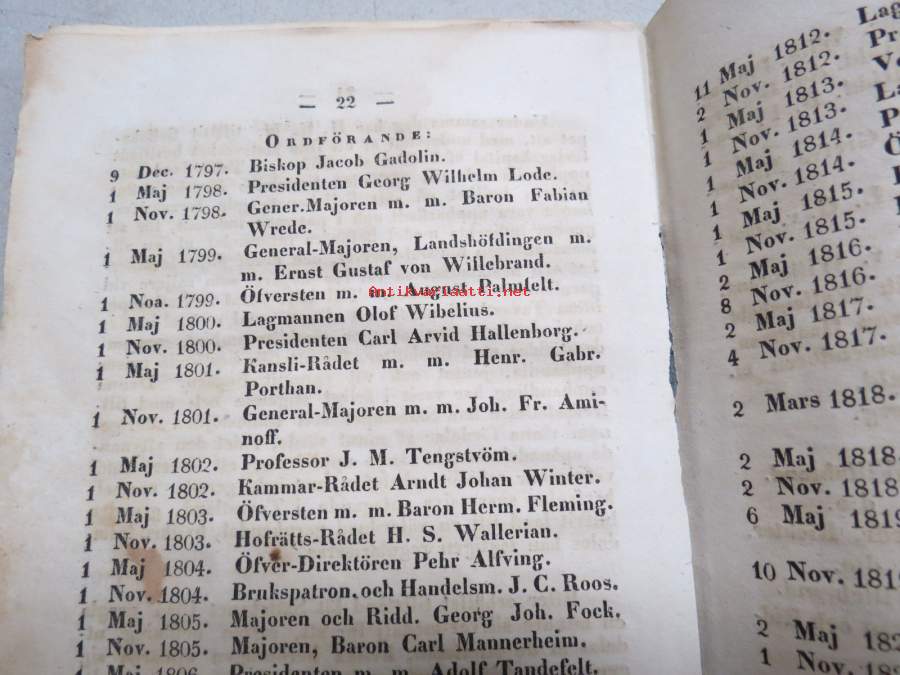 — 22 —
ORDFÖRANDE:
9 Dec. 1797. Biskop Jacob Gadolin.
1 Maj 1798. Presidenten Georg Wilhelm Lode.
1 Nov. 1798. Gener.Majoren m. m. Baron Fabian
Wrede.
1 Maj 1799. General-Majoren, Landshöfdingen m.
m. Ernst Gustaf von Willebrand.
1 Noa. 1799. Öfversten m. m. August Palmfelt.
antikvariaatti.net
1 Maj 1800. Lagmannen Olof Wibelius.
1 Nov. 1800. Presidenten Carl Arvid Hallenborg.
1 Maj 1801. Kansli-Rådet m. m. Henr. Gabr.
Porthan.
1 Nov. 1801. General-Majoren m. m. Joh. Fr. Ami-
noff.
1 Maj 1802. Professor J. M. Tengstvöm.
1 Nov. 1802. Kammar-Rådet Arndt Johan Winter.
1 Maj 1803. Öfversten m. m. Baron Herm. Fleming.
1 Nov. 1803. Hofrätts-Rådet H. S. Wallerian.
1 Maj 1804. Öfver-Direktören Pehr Alfving.
1 Nov. 1804. Brukspatron. och Handelsm. J. C. Roos.
1 Maj 1805. Majoren och Ridd. Georg Joh. Fock.
1 Nov. 1805. Majoren, Baron Carl Mannerheim.
1 Maj 1806. Presidenten m. m. Adolf Tandefelt.
11 Maj 1812. Lag
2 Nov. 1812. Pr
1 Maj 1813.
1 Nov. 1813.
1 Maj 1814.
1 Nov. 1814.
1 Maj 1815.
1 Nov. 1815.
2 Maj 1816.
8 Nov. 1816.
2 Maj 1817.
4 Nov. 1817.
2 Mars 1818.
2 Maj 1818.
2 Nov. 1818
6 Maj 1819
10 Nov. 1819
2 Maj 182
1 Nov. 18